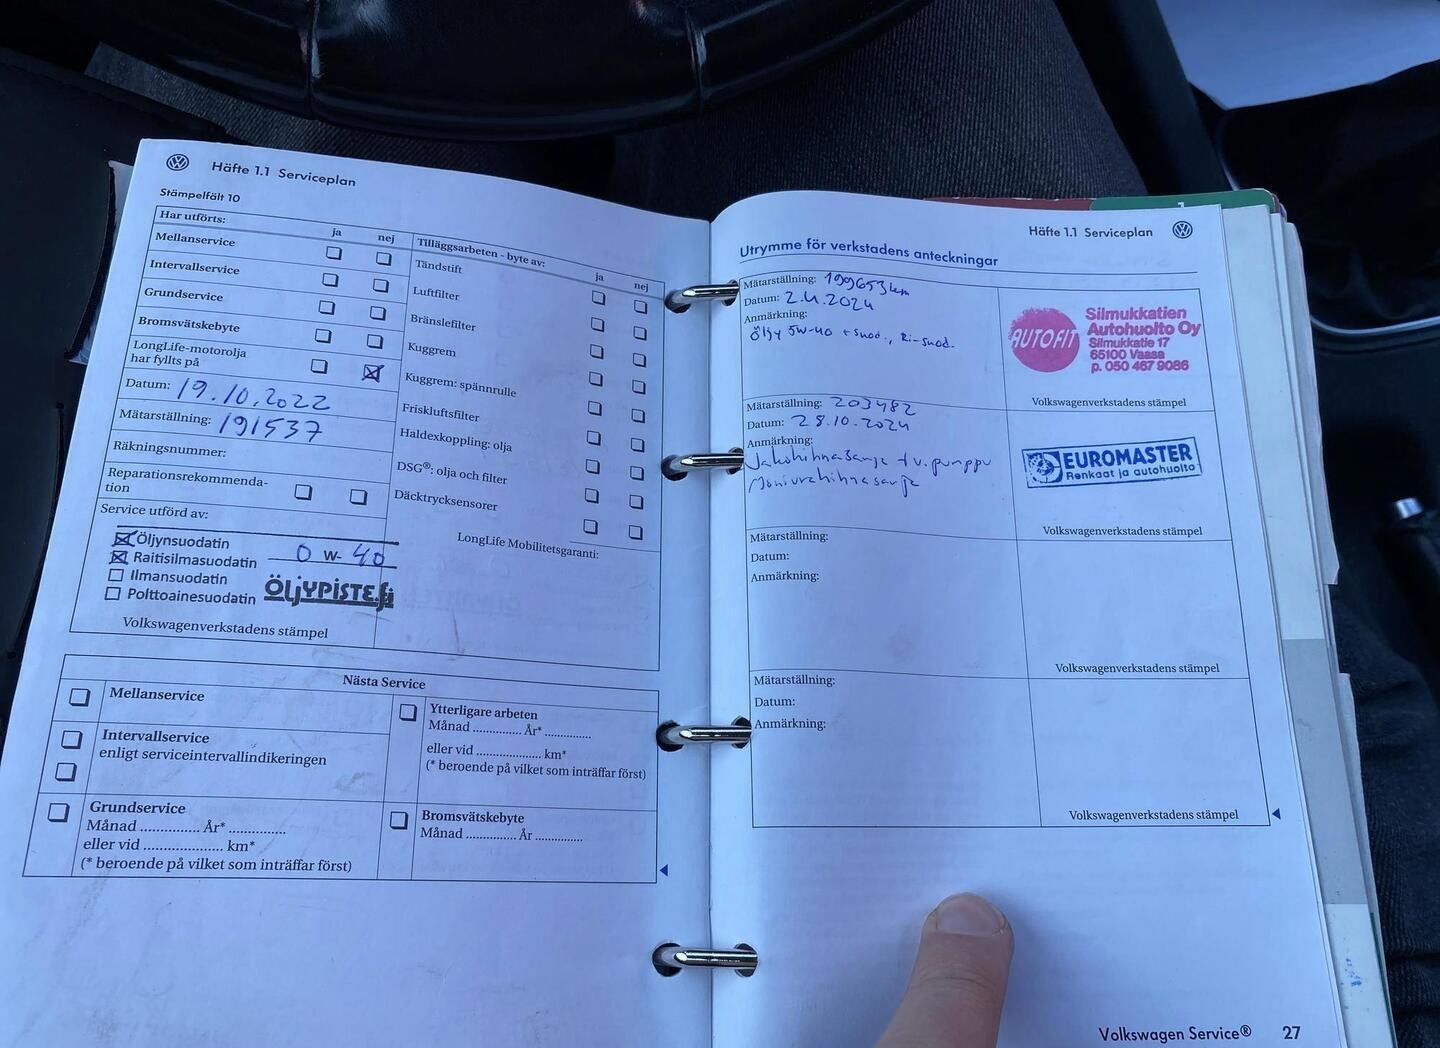 Häfte 1.1 Serviceplan
Stämpelfält 10
Har utförts:
ja nej
Mellanservice
Intervallservice
Grundservice
Bromsvätskebyte
LongLife-motorolja
har fyllts på
Datum: 19.10.2022
Mätarställning: 191537
Räkningsnummer:
Reparationsrekommenda-
tion
Service utförd av:
Öljynsuodatin
Raitisilmasuodatin 0 W- 40
Ilmansuodatin
Polttoainesuodatin
ÖLJYPISTE.fi
Volkswagenverkstadens stämpel
Tilläggsarbeten - byte av:
ja nej
Tändstift
Luftfilter
Bränslefilter
Kuggrem
Kuggrem: spännrulle
Friskluftsfilter
Haldexkoppling: olja
DSG®: olja och filter
Däcktrycksensorer
LongLife Mobilitetsgaranti:
Nästa Service
Mellanservice
Intervallservice
enligt serviceintervallindikeringen
Grundservice
Månad .............. År* ..............
eller vid .................... km*
(* beroende på vilket som inträffar först)
Ytterligare arbeten
Månad .............. År* .............
eller vid .................. km*
(* beroende på vilket som inträffar först)
Bromsvätskebyte
Månad .............. År .............
Häfte 1.1 Serviceplan
Utrymme för verkstadens anteckningar
Mätarställning: 199653 km
Datum: 2.4.2024
Anmärkning:
Öljy 5W-40 + suod., Ri-suod.
AUTOFIT
Silmukkatien
Autohuolto Oy
Silmukkatie 17
65100 Vaasa
p. 050 467 9086
Volkswagenverkstadens stämpel
Mätarställning: 203482
Datum: 28.10.2024
Anmärkning:
Jakohihnasarja + v.pumppu
Moniurahihnasarja
EUROMASTER
Renkaat ja autohuolto
Volkswagenverkstadens stämpel
Mätarställning:
Datum:
Anmärkning:
Volkswagenverkstadens stämpel
Mätarställning:
Datum:
Anmärkning:
Volkswagenverkstadens stämpel
Volkswagen Service® 27